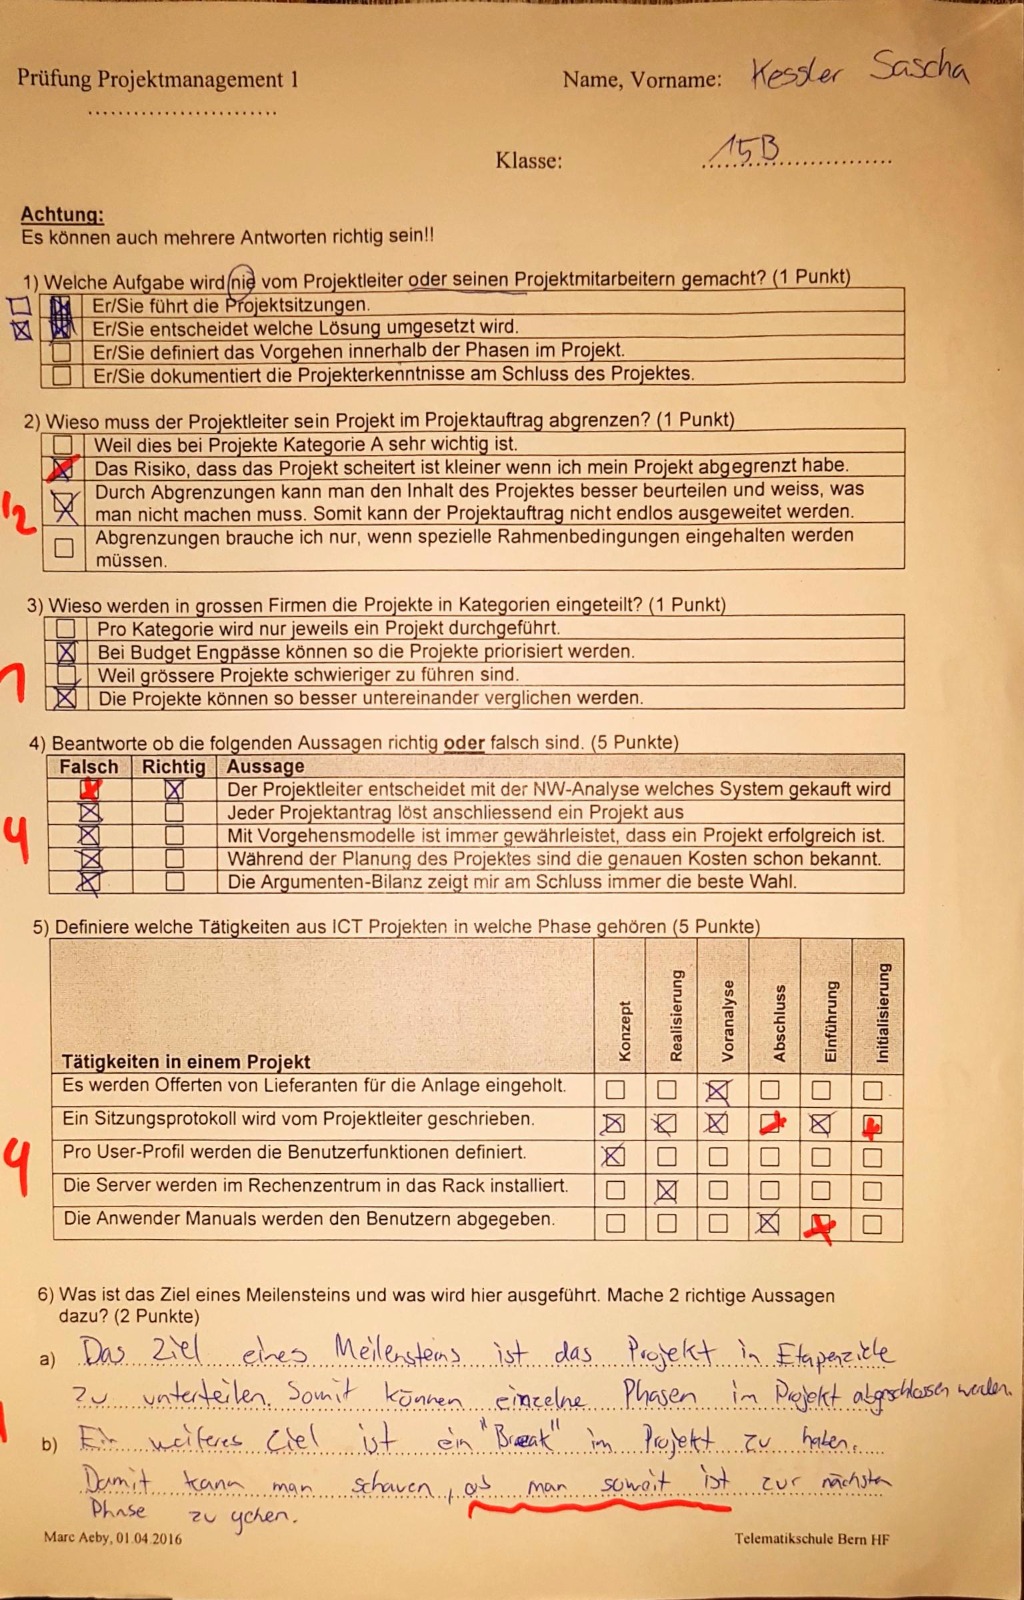 Prüfung Projektmanagement 1
Name, Vorname: Kessler Sascha
Klasse: 15B
Achtung:
Es können auch mehrere Antworten richtig sein!!
1) Welche Aufgabe wird nie vom Projektleiter oder seinen Projektmitarbeitern gemacht? (1 Punkt)
Er/Sie führt die Projektsitzungen.
Er/Sie entscheidet welche Lösung umgesetzt wird.
Er/Sie definiert das Vorgehen innerhalb der Phasen im Projekt.
Er/Sie dokumentiert die Projekterkenntnisse am Schluss des Projektes.
2) Wieso muss der Projektleiter sein Projekt im Projektauftrag abgrenzen? (1 Punkt)
Weil dies bei Projekte Kategorie A sehr wichtig ist.
Das Risiko, dass das Projekt scheitert ist kleiner wenn ich mein Projekt abgegrenzt habe.
Durch Abgrenzungen kann man den Inhalt des Projektes besser beurteilen und weiss, was
man nicht machen muss. Somit kann der Projektauftrag nicht endlos ausgeweitet werden.
1/2
Abgrenzungen brauche ich nur, wenn spezielle Rahmenbedingungen eingehalten werden
müssen.
3) Wieso werden in grossen Firmen die Projekte in Kategorien eingeteilt? (1 Punkt)
Pro Kategorie wird nur jeweils ein Projekt durchgeführt.
Bei Budget Engpässe können so die Projekte priorisiert werden.
Weil grössere Projekte schwieriger zu führen sind.
1
Die Projekte können so besser untereinander verglichen werden.
4) Beantworte ob die folgenden Aussagen richtig oder falsch sind. (5 Punkte)
Falsch Richtig Aussage
Der Projektleiter entscheidet mit der NW-Analyse welches System gekauft wird
Jeder Projektantrag löst anschliessend ein Projekt aus
4
Mit Vorgehensmodelle ist immer gewährleistet, dass ein Projekt erfolgreich ist.
Während der Planung des Projektes sind die genauen Kosten schon bekannt.
Die Argumenten-Bilanz zeigt mir am Schluss immer die beste Wahl.
5) Definiere welche Tätigkeiten aus ICT Projekten in welche Phase gehören (5 Punkte)
Tätigkeiten in einem Projekt Konzept Realisierung Voranalyse Abschluss Einführung Initialisierung
Es werden Offerten von Lieferanten für die Anlage eingeholt.
Ein Sitzungsprotokoll wird vom Projektleiter geschrieben.
Pro User-Profil werden die Benutzerfunktionen definiert.
4
Die Server werden im Rechenzentrum in das Rack installiert.
Die Anwender Manuals werden den Benutzern abgegeben.
6) Was ist das Ziel eines Meilensteins und was wird hier ausgeführt. Mache 2 richtige Aussagen
dazu? (2 Punkte)
a) Das Ziel eines Meilensteins ist das Projekt in Etapenziele
zu unterteilen. Somit können einzelne Phasen im Projekt abgeschlossen werden.
1
b) Ein weiteres Ziel ist ein "Break" im Projekt zu haben.
Damit kann man schauen, ob man soweit ist zur nächsten
Phase zu gehen.
Marc Aeby, 01.04.2016
Telematikschule Bern HF